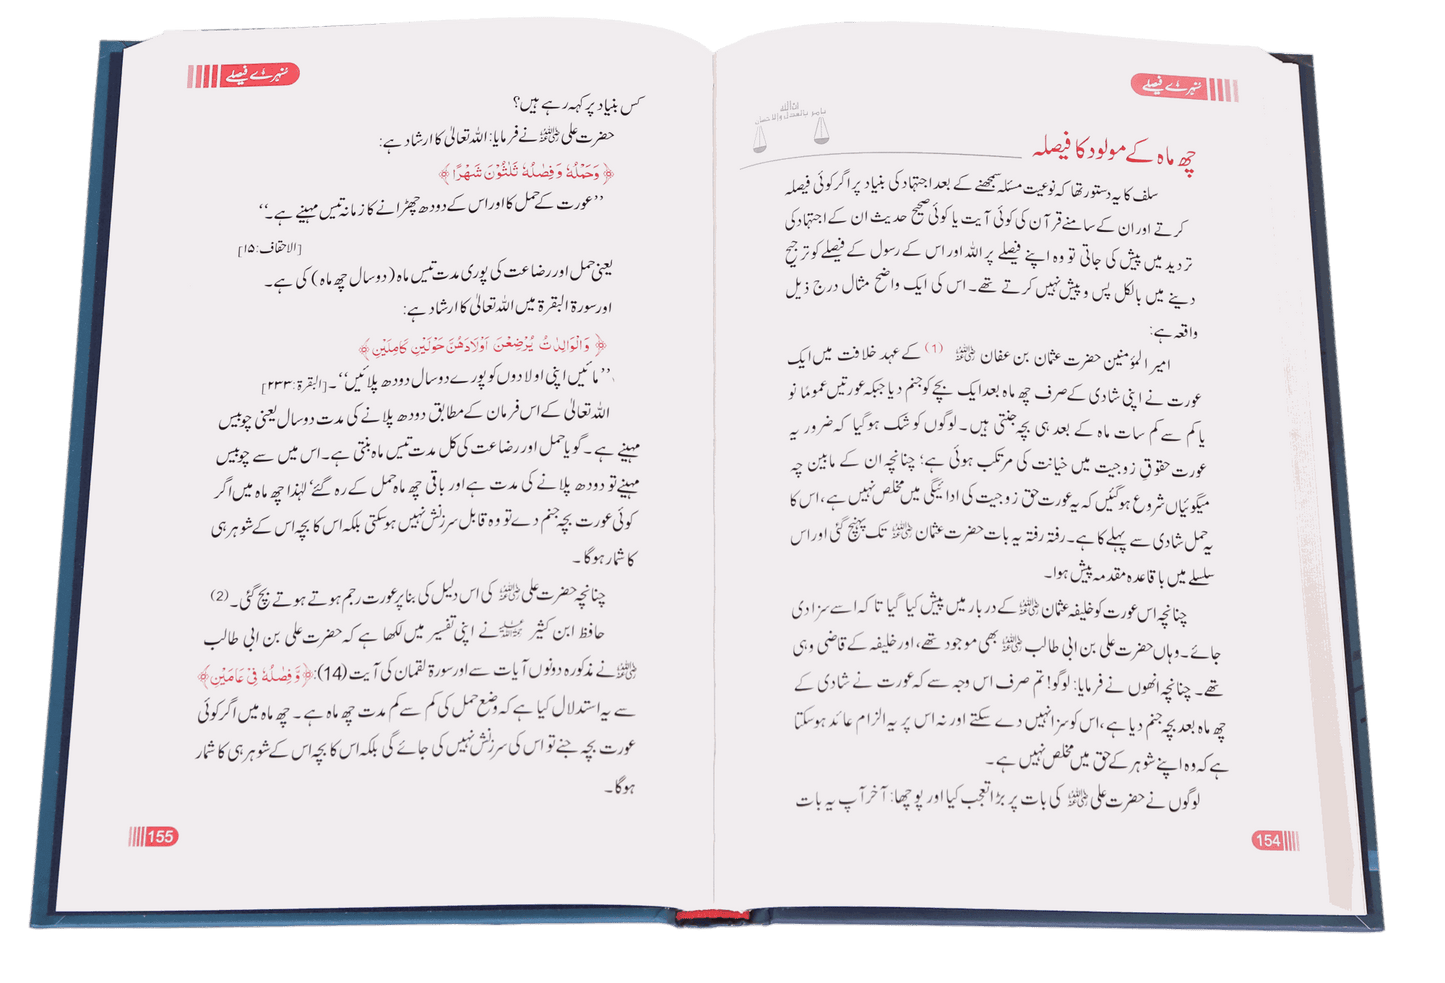 سنہرے فیصلے
ان اللہ
یامر بالعدل والاحسان
چھ ماہ کے مولود کا فیصلہ
سلف کا یہ دستور تھا کہ نوعیت مسئلہ سمجھنے کے بعد اجتہاد کی بنیاد پر اگر کوئی فیصلہ
کرتے اور ان کے سامنے قرآن کی کوئی آیت یا کوئی صحیح حدیث ان کے اجتہاد کی
تردید میں پیش کی جاتی تو وہ اپنے فیصلے پر اللہ اور اس کے رسول کے فیصلے کو ترجیح
دینے میں بالکل پس و پیش نہیں کرتے تھے۔ اس کی ایک واضح مثال درج ذیل
واقعہ ہے:
امیر المؤمنین حضرت عثمان بن عفان رضی اللہ عنہ (1) کے عہد خلافت میں ایک
عورت نے اپنی شادی کے صرف چھ ماہ بعد ایک بچے کو جنم دیا جبکہ عورتیں عموماً نو
یا کم سے کم سات ماہ کے بعد ہی بچہ جنتی ہیں۔ لوگوں کو شک ہو گیا کہ ضرور یہ
عورت حقوقِ زوجیت میں خیانت کی مرتکب ہوئی ہے؛ چنانچہ ان کے مابین چہ
میگوئیاں شروع ہو گئیں کہ یہ عورت حق زوجیت کی ادائیگی میں مخلص نہیں ہے، اس کا
یہ حمل شادی سے پہلے کا ہے۔ رفتہ رفتہ یہ بات حضرت عثمان رضی اللہ عنہ تک پہنچ گئی اور اس
سلسلے میں باقاعدہ مقدمہ پیش ہوا۔
چنانچہ اس عورت کو خلیفہ عثمان رضی اللہ عنہ کے دربار میں پیش کیا گیا تاکہ اسے سزا دی
جائے۔ وہاں حضرت علی بن ابی طالب رضی اللہ عنہ بھی موجود تھے، اور خلیفہ کے قاضی وہی
تھے۔ چنانچہ انھوں نے فرمایا: لوگو! تم صرف اس وجہ سے کہ عورت نے شادی کے
چھ ماہ بعد بچہ جنم دیا ہے، اس کو سزا نہیں دے سکتے اور نہ اس پر یہ الزام عائد ہو سکتا
ہے کہ وہ اپنے شوہر کے حق میں مخلص نہیں ہے۔
لوگوں نے حضرت علی رضی اللہ عنہ کی بات پر بڑا تعجب کیا اور پوچھا: آخر آپ یہ بات
154
سنہرے فیصلے
کس بنیاد پر کہہ رہے ہیں؟
حضرت علی رضی اللہ عنہ نے فرمایا: اللہ تعالیٰ کا ارشاد ہے:
﴿وَحَمْلُهٗ وَفِصٰلُهٗ ثَلٰثُوْنَ شَهْرًا﴾
’’عورت کے حمل کا اور اس کے دودھ چھڑانے کا زمانہ تیس مہینے ہے۔‘‘
[الاحقاف: ۱۵]
یعنی حمل اور رضاعت کی پوری مدت تیس ماہ (دو سال چھ ماہ) کی ہے۔
اور سورۃ البقرۃ میں اللہ تعالیٰ کا ارشاد ہے:
﴿وَالْوَالِدٰتُ يُرْضِعْنَ اَوْلَادَهُنَّ حَوْلَيْنِ كَامِلَيْنِ﴾
’’مائیں اپنی اولادوں کو پورے دو سال دودھ پلائیں‘‘۔ [البقرۃ: ۲۳۳]
اللہ تعالیٰ کے اس فرمان کے مطابق دودھ پلانے کی مدت دو سال یعنی چوبیس
مہینے ہے۔ گویا حمل اور رضاعت کی کل مدت تیس ماہ بنتی ہے۔ اس میں سے چوبیس
مہینے تو دودھ پلانے کی مدت ہے اور باقی چھ ماہ حمل کے رہ گئے‘ لہٰذا چھ ماہ میں اگر
کوئی عورت بچہ جنم دے تو وہ قابل سرزنش نہیں ہو سکتی بلکہ اس کا بچہ اس کے شوہر ہی
کا شمار ہوگا۔
چنانچہ حضرت علی رضی اللہ عنہ کی اس دلیل کی بنا پر عورت رجم ہوتے ہوتے بچ گئی۔ (2)
حافظ ابن کثیر رحمہ اللہ نے اپنی تفسیر میں لکھا ہے کہ حضرت علی بن ابی طالب
رضی اللہ عنہ نے مذکورہ دونوں آیات سے اور سورۃ لقمان کی آیت (14): ﴿وَّفِصٰلُهٗ فِیْ عَامَيْنِ﴾
سے یہ استدلال کیا ہے کہ وضع حمل کی کم سے کم مدت چھ ماہ ہے۔ چھ ماہ میں اگر کوئی
عورت بچہ جنے تو اس کی سرزنش نہیں کی جائے گی بلکہ اس کا بچہ اس کے شوہر ہی کا شمار
ہوگا۔
155